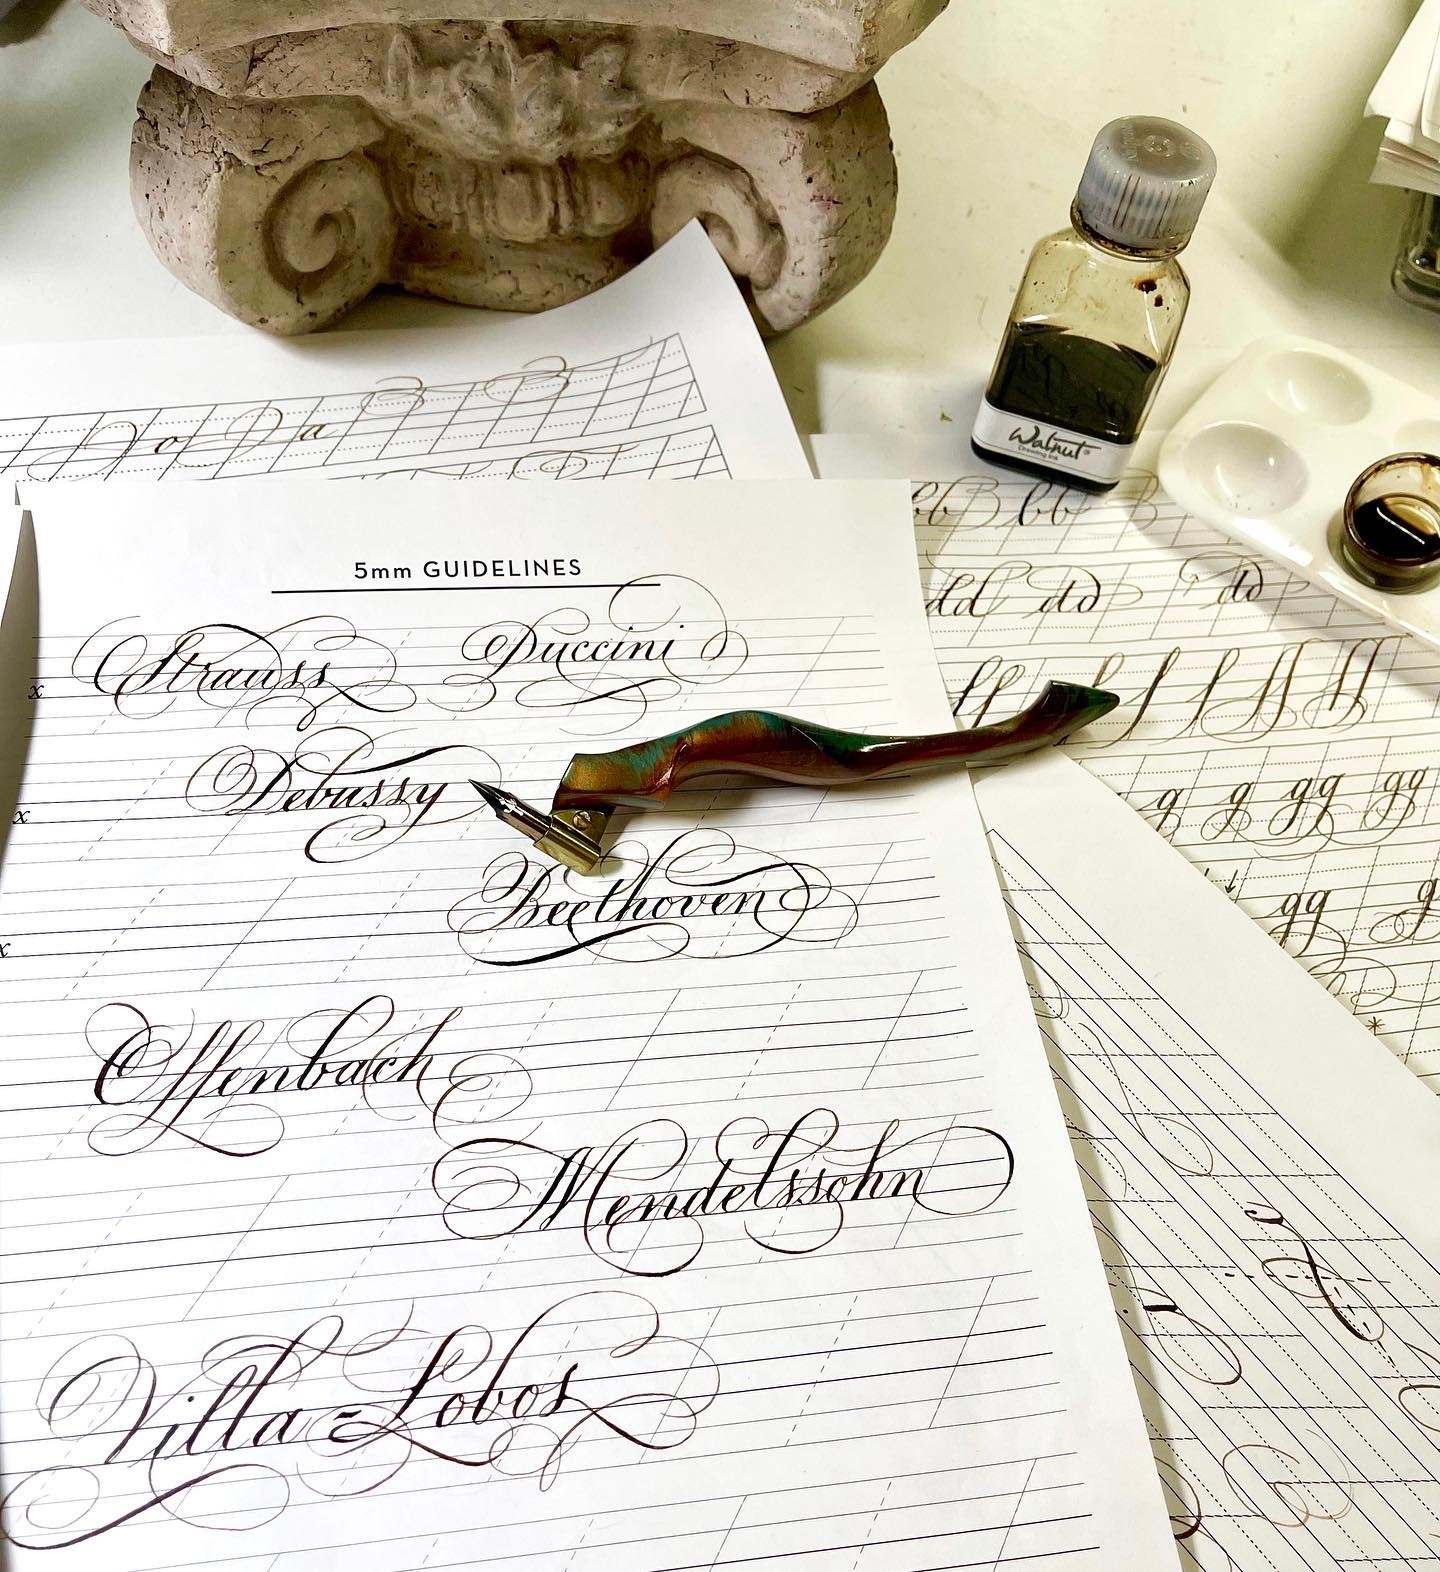 Walnut
Drawing Ink
bb bb
dd dd dd
5mm GUIDELINES
Strauss Puccini
x
Debussy
x
Beethoven
x
Offenbach
Mendelssohn
Villa=Lobos
ff f f f ff ff
g g gg gg
gg g